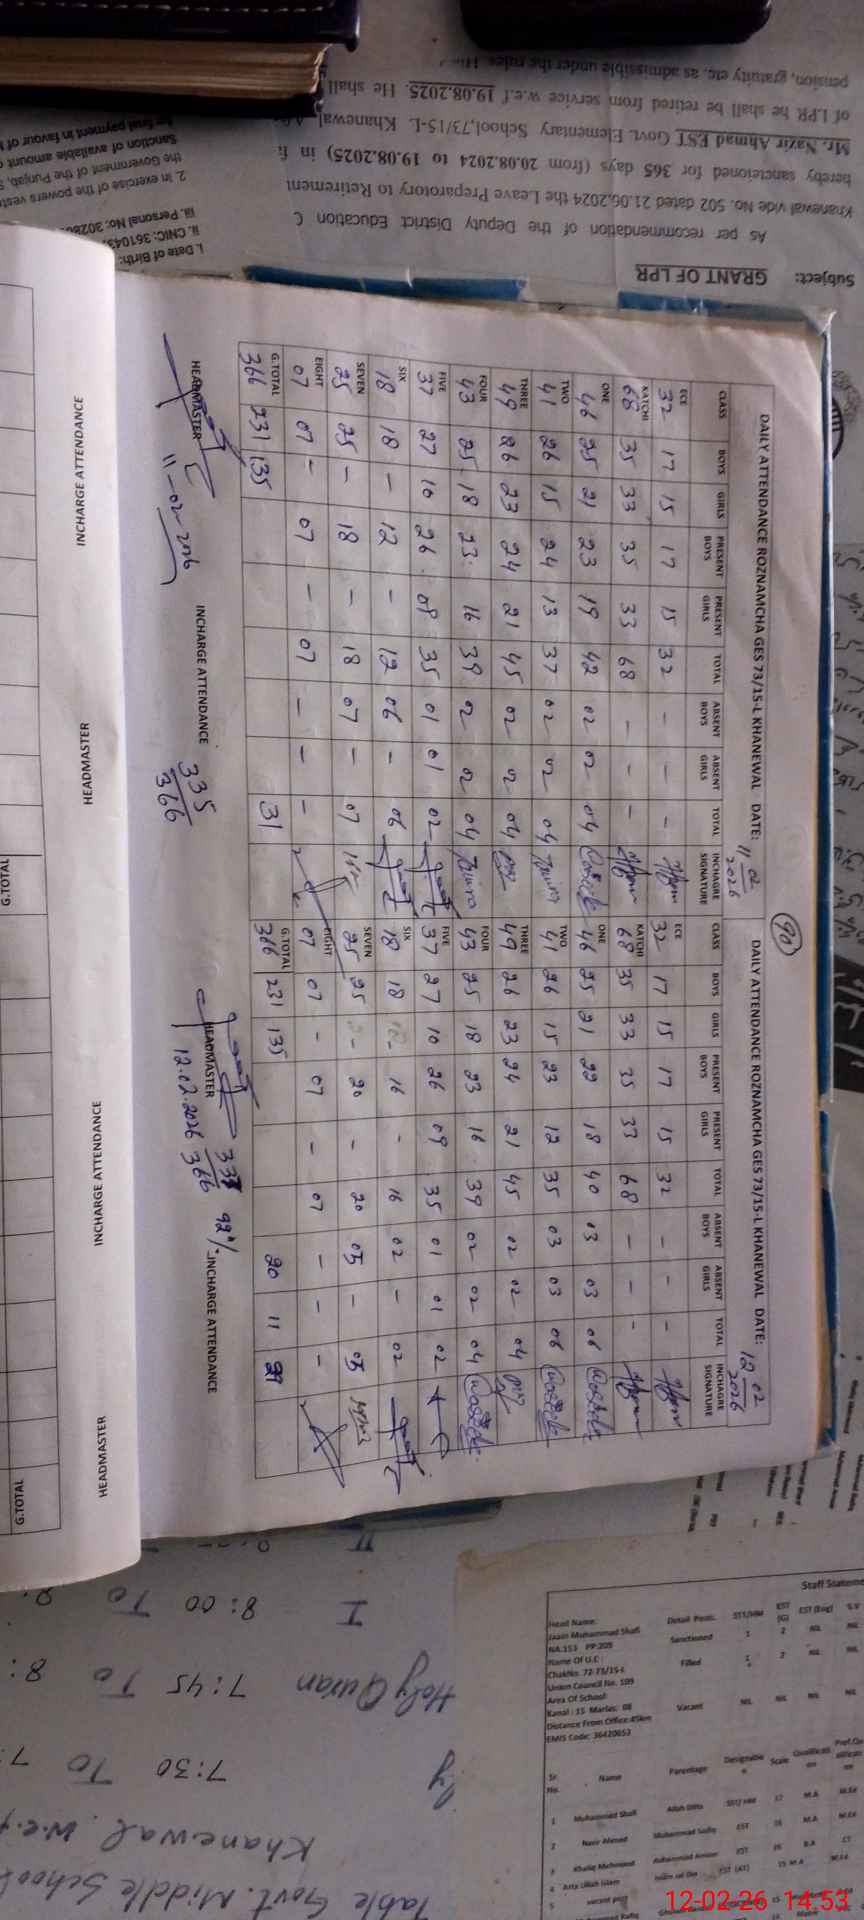 90
DAILY ATTENDANCE ROZNAMCHA GES 73/15-L KHANEWAL DATE: 11 02 2026
CLASS BOYS GIRLS PRESENT BOYS PRESENT GIRLS TOTAL ABSENT BOYS ABSENT GIRLS TOTAL INCHAGRE SIGNATURE
ECE 32 17 15 17 15 32 - - -
KATCHI 68 35 33 35 33 68 - - -
ONE 46 25 21 23 19 42 02 02 04
TWO 41 26 15 24 13 37 02 02 04
THREE 49 26 23 24 21 45 02 02 04
FOUR 43 25 18 23 16 39 02 02 04
FIVE 37 27 10 26 09 35 01 01 02
SIX 18 18 - 12 - 12 06 - 06
SEVEN 25 25 - 18 - 18 07 - 07
EIGHT 07 07 - 07 - 07 - - -
G.TOTAL 366 231 135 31
HEADMASTER INCHARGE ATTENDANCE 335
11-02-2026 366
DAILY ATTENDANCE ROZNAMCHA GES 73/15-L KHANEWAL DATE: 12 02 2026
CLASS BOYS GIRLS PRESENT BOYS PRESENT GIRLS TOTAL ABSENT BOYS ABSENT GIRLS TOTAL INCHAGRE SIGNATURE
ECE 32 17 15 17 15 32 - - -
KATCHI 68 35 33 35 33 68 - - -
ONE 46 25 21 22 18 40 03 03 06
TWO 41 26 15 23 12 35 03 03 06
THREE 49 26 23 24 21 45 02 02 04
FOUR 43 25 18 23 16 39 02 02 04
FIVE 37 27 10 26 09 35 01 01 02
SIX 18 18 - 16 - 16 02 - 02
SEVEN 25 25 - 20 - 20 05 - 05
EIGHT 07 07 - 07 - 07 - - -
G.TOTAL 366 231 135 20 11
HEADMASTER 92% INCHARGE ATTENDANCE
12.02.2026 366
INCHARGE ATTENDANCE
HEADMASTER
INCHARGE ATTENDANCE
HEADMASTER
G.TOTAL
G.TOTAL
Subject: GRANT OF LPR
As per recommendation of the Deputy District Education
Khanewal vide No. 502 dated 21.06.2024 the Leave Preparotory to Retirement
hereby sanctioned for 365 days (from 20.08.2024 to 19.08.2025) in
Mr. Nazir Ahmad EST Govt. Elementary School,73/15-L Khanewal
of LPR he shall be retired from service w.e.f 19.08.2025. He shall
pension, gratuity etc. as admissible under the rules.
i. Date of Birth:
ii. CNIC: 361043
iii. Personal No: 302
2. In exercise of the powers
the Government of the Punjab,
Sanction of available amount
final payment in favour of
Table Govt. Middle School
Khanewal. w.e.f
7:30 To
Holy Quran 7:45 To 8:
I 8:00 To
II
Staff Stateme
Head Name: Detail Posts. SST/HM EST (G) EST (Eng) S.V
NA:153 PP:209 Sanctioned 1 2 NIL NIL
Name Of U.C :
ChakNo. 72-73/15-L Filled 1 2 NIL NIL
Union Council No. 109
Area Of School:
Kanal : 15 Marlas: 08 Vacant NIL NIL NIL NIL
Distance From Office:45km
EMIS Code: 36420653
Sr. No. Name Parentage Scale
1 Muhammad Shafi Allah Ditta SST/ HM 17 M.A M.Ed
2 Nazir Ahmed EST 16 M.A M.Ed
3 Khaliq Mehmood EST 16 B.A CT
4 EST (AT) 15 M.A M.Ed
5 vacant post
12-02-26 14:53